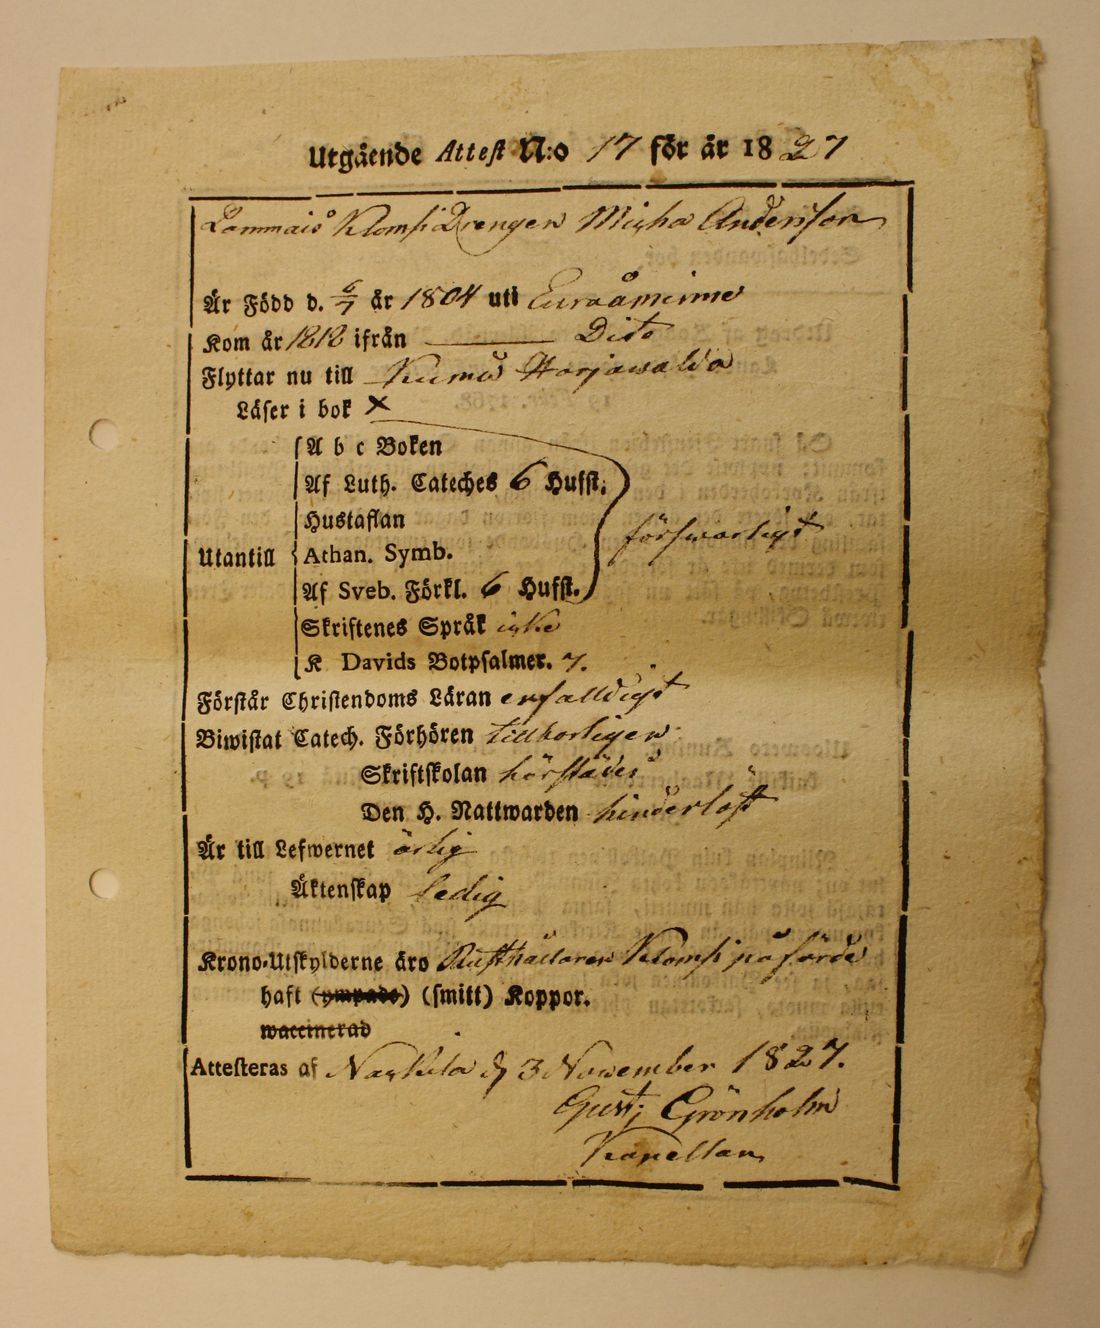 Utgående Attest N:o 17 för år 1827
Lammais Klomsi Drengen Micha Andersson
Är Född d. 6/7 år 1804 uti Euraåminne
Kom år 1818 ifrån — Dito
Flyttar nu till Kumo Harjawalda
Läser i bok x
A b c Boken
Af Luth. Cateches 6 Hufst.
Hustaflan
försvarligt
Utantill Athan. Symb.
Af Sveb. Förkl. 6 Hufst.
Skriftenes Språk icke
K Davids Botpsalmer. 7.
Förstår Christendoms Läran enfalldigt
Biwistat Catech. Förhören tillbörligen
Skriftskolan härstädes
Den H. Nattwarden hinderlöst
Är till Lefwernet ärlig
Äktenskap ledig
Krono-Utskylderne äro Rusthållaren Klomsi påförde
haft (ympade) (smitt) Koppor.
waccinerad
Attesteras af Nackila d. 3 November 1827.
Gust: Grönholm
Kapellan